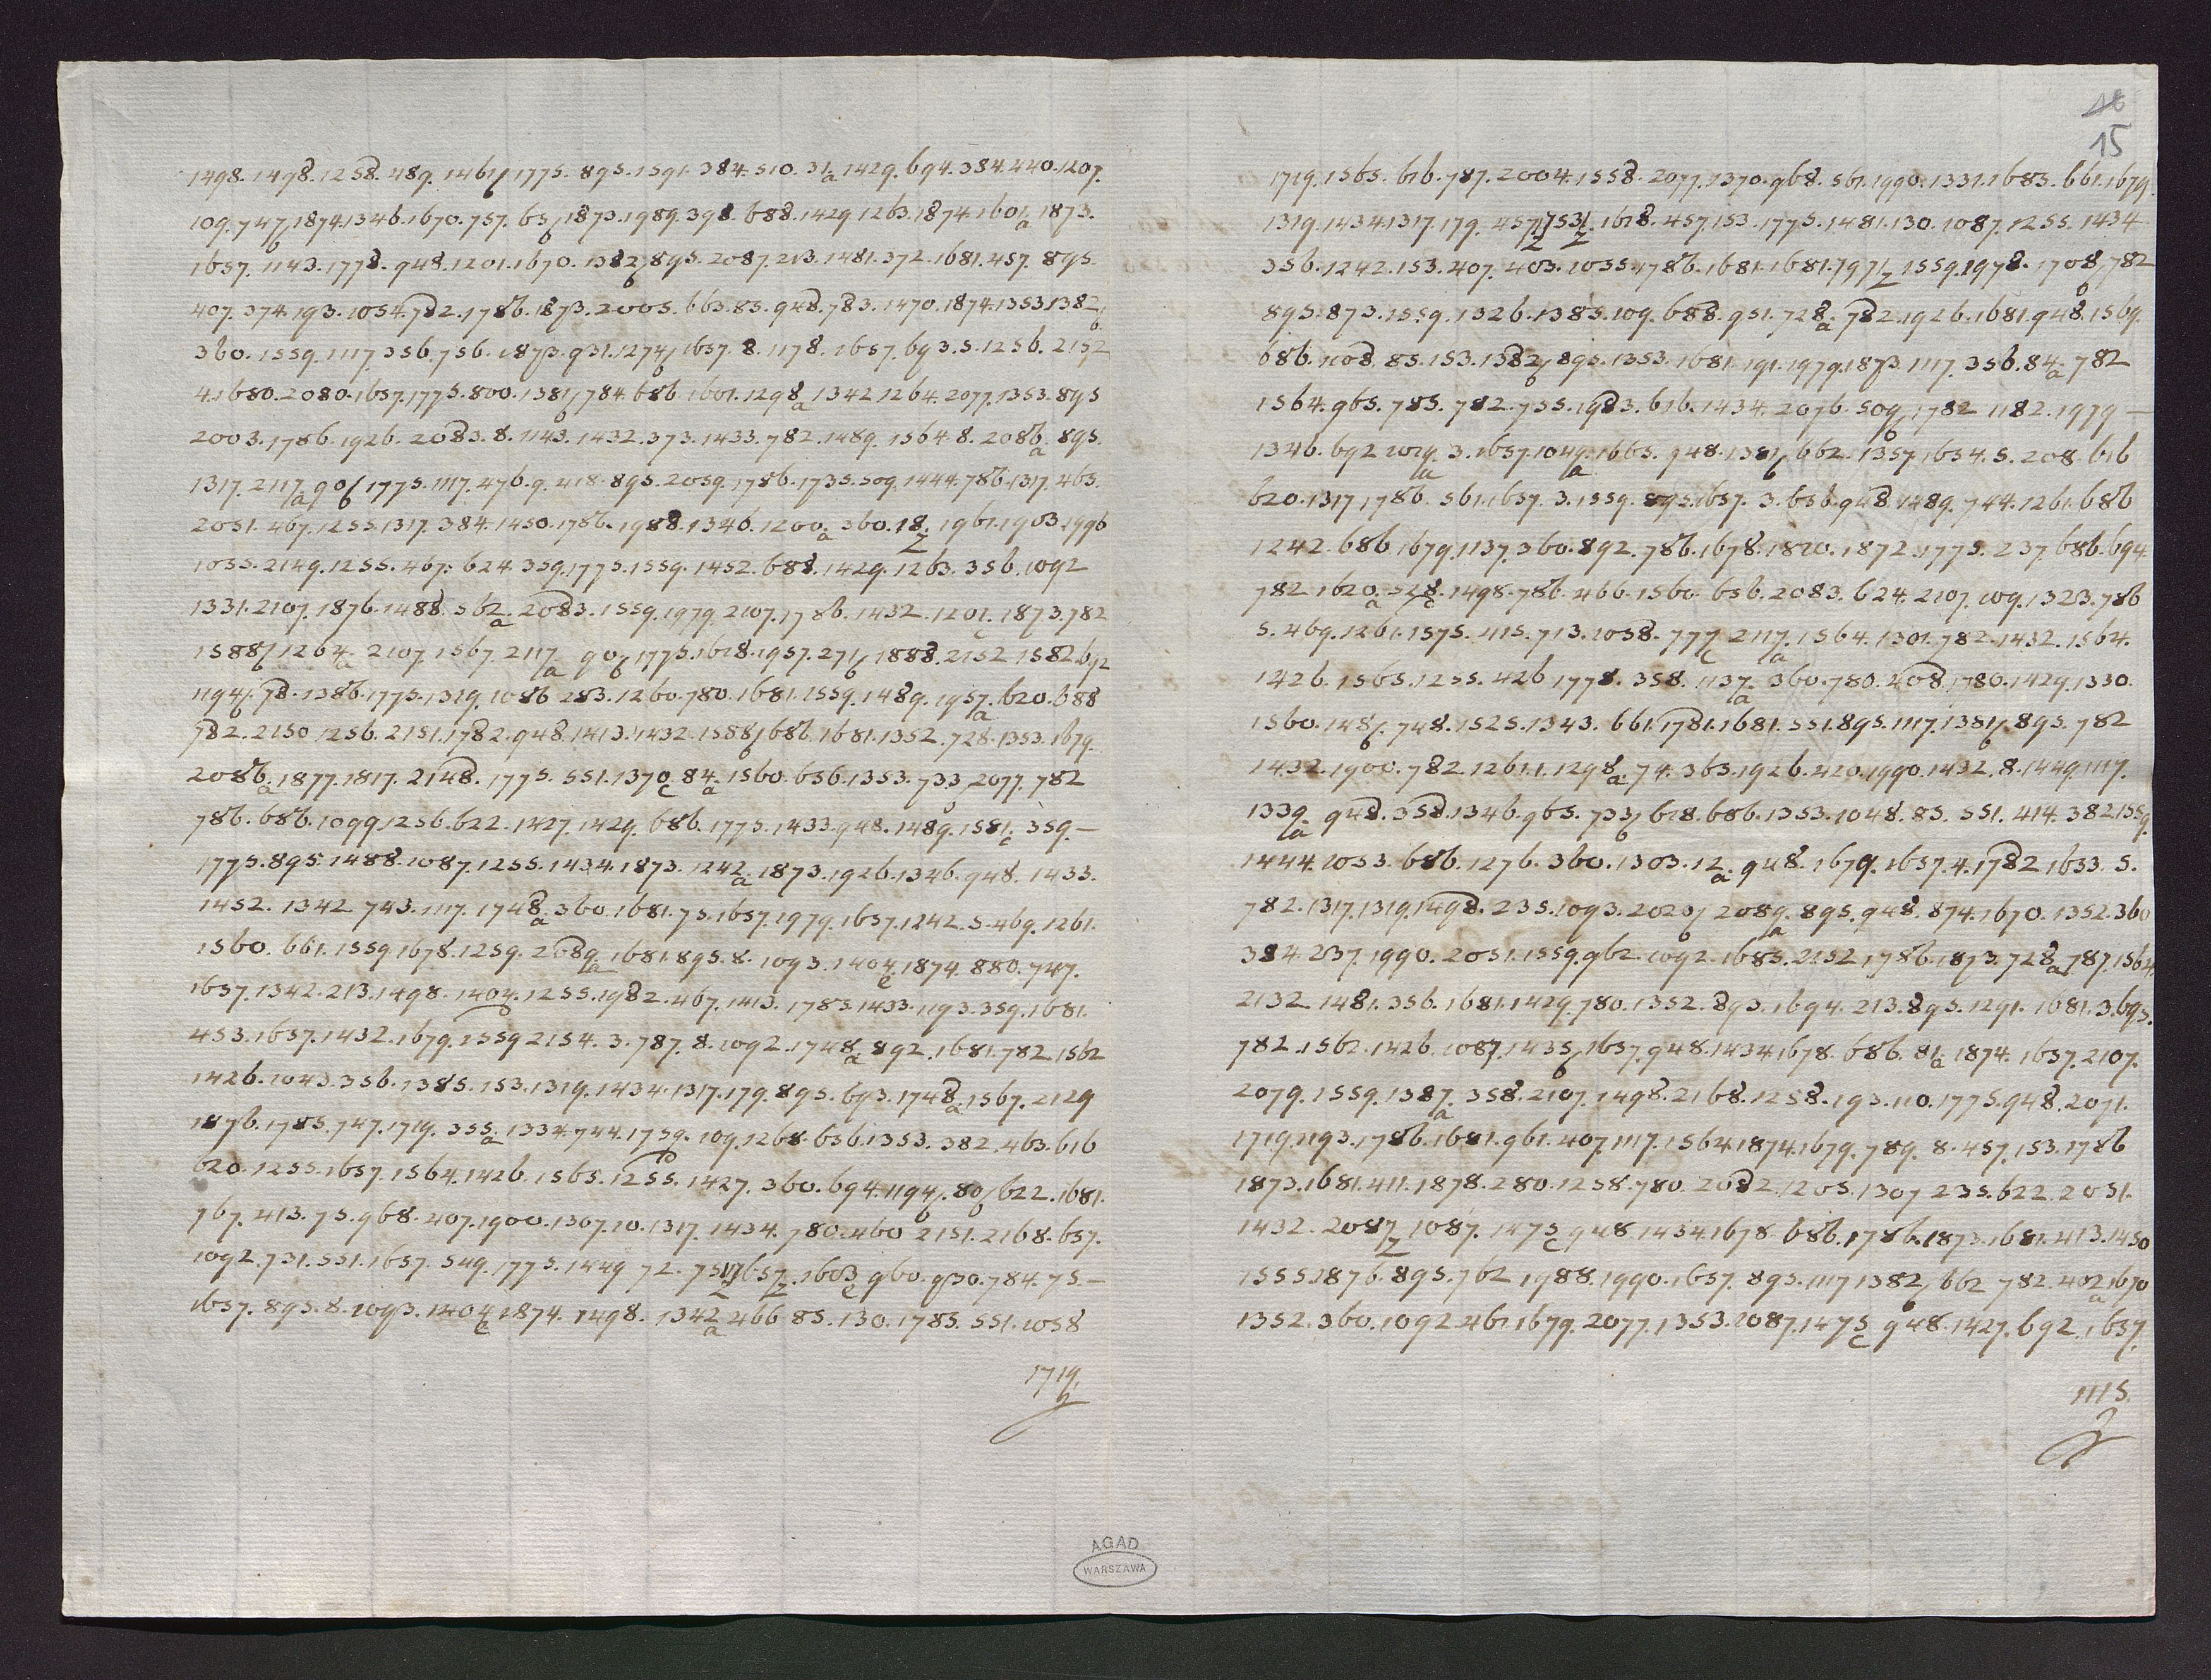 1498. 1498. 1258. 489. 1461b 1775. 895. 1591. 384. 510. 31a. 1429. 694. 384. 440. 1207.
109. 747b 1874. 1346. 1670. 757. 65b 1873. 1989. 398. 688. 1429. 1263. 1874. 1601a. 1873.
1657. 1143. 1778. 948. 1201. 1670. 1382b 895. 2087. 213. 1481. 372. 1681. 457. 895.
407. 374. 193. 1054. 782. 1786. 1873. 2005. 663. 85. 948. 783. 1470. 1874. 1353. 1382b
360. 1559. 1117. 356. 756. 1873. 931. 1274b 1657. 8. 1178. 1657. 693. 5. 1256. 2152
4. 1680. 2080. 1657. 1775. 800. 1381b 784. 686. 1601. 1298a 1342. 1264. 2077. 1353. 895
2003. 1786. 1926. 2083. 8. 1143. 1432. 373. 1433. 782. 1489. 1564. 8. 2086a. 895.
1317. 2117a 90b 1775. 1117. 476. 9. 418. 895. 2059. 1786. 1735. 509. 1444. 786. 1317. 465.
2051. 467. 1255. 1317. 384. 1450. 1786. 1988. 1346. 1200a. 360. 18z. 1961. 1903. 1996
1035. 2149. 1255. 467. 624. 359. 1775. 1559. 1452. 688. 1429. 1263. 356. 1092
1331. 2107. 1876. 1488. 562a. 2083. 1559. 1979. 2107. 1786. 1432. 1201c. 1873. 782
1588b 1264a. 2107. 1567. 2117a 90b 1775. 1618. 1957. 271b 1888. 2152. 1582. 612
1194b. 78. 1386. 1775. 1319. 1086. 283. 1260. 780. 1681. 1559. 1489. 1957a. 620. 688
782. 2150. 1256. 2151. 1782. 948. 1413. 1432. 1588b 686. 1681. 1352. 728. 1353. 1679.
2086a. 1877. 1817. 2148. 1775. 551. 1370c 84a. 1560. 656. 1353. 733b 2077. 782
786. 686. 1099. 1256. 622. 1427. 1429. 686. 1775. 1433. 948. 1489. 1581c. 359.—
1775. 895. 1488. 1087. 1255. 1434. 1873. 1242a. 1873. 1926. 1346. 948. 1433.
1452. 1342. 743. 1117. 1748a. 360. 1681. 75. 1657. 1979. 1657. 1242. 5. 469. 1261.
1560. 661. 1559. 1678. 1259. 2089a 1681. 895. 8. 1093. 1404c. 1874. 880. 747.
1657. 1342. 213. 1498. 1404. 1255. 1982. 467. 1413. 1785. 1433. 1193. 359. 1681.
453. 1657. 1432. 1679. 1559. 2154. 3. 787. 8. 1092. 1748a. 892. 1681. 782. 1562
1426. 1043. 356. 1385. 153. 1319. 1434. 1317. 179. 895. 693. 1748a. 1567. 2129
1876. 1785. 747. 1719. 355a. 1334. 744. 1759. 109. 1268. 656. 1353. 382. 463. 616
620. 1255. 1657. 1564. 1426. 1565. 1255. 1427. 360. 694. 1194b. 80b 622. 1681.
767. 413. 75. 968. 407. 1900. 1307. 10. 1317. 1434. 780. 460. 2151. 2168. 657.
1092. 731. 551. 1657. 549. 1775. 1449. 72. 1657z. 1603c. 960. 930. 784. 75.—
1657. 895. 8. 1093. 1404c 1874. 1498. 1342a 466. 85. 130. 1785. 551. 1058
1719.
15
1719. 1565. 616. 787. 2004. 1558. 2077. 1370. 968. 561. 1990. 1331. 1685. 661. 1679.
1319. 1434. 1317. 179. 457. 1618. 457. 153. 1775. 1481. 130. 1087. 1255. 1434
356. 1242. 153. 407. 403. 1035. 1786. 1681. 1681. 797z 1559. 1978. 1708b 782
895. 873. 1559. 1326. 1385. 109. 688. 951. 728a. 782. 1926. 1681. 948. 1569.
686. 1108. 85. 153. 1382b 895. 1353. 1681. 191. 1979. 1873. 1117. 356. 84a. 782
1564. 965. 785. 782. 755. 1983. 616. 1434. 2076. 509b 1782. 1182. 1979—
1346. 692. 1019a. 3. 1657. 1049a. 1665. 948. 1381b 662. 1357. 1654. 5. 208. 616
620. 1317. 1786. 561. 1657. 3. 1559. 892. 1657. 3. 656. 948. 1489. 744. 1261. 686
1242. 686. 1679. 1137. 360. 892. 786. 1678. 1820. 1872. 1775. 237. 686. 694.
782. 1620a. 528c. 1498. 786. 466. 1560. 656. 2083. 624. 2107. 109. 1323. 786
5. 469. 1261. 1575. 415. 713. 1058. 777c 2117a. 1564. 1301. 782. 1432. 1564.
1426. 1565. 1255. 426. 1778. 358. 1137a. 360. 780. 208. 1780. 1429. 1330.
1560. 148b. 748. 1525. 1343. 661. 1781. 1681. 551. 895. 1117. 1381b 895. 782
1432. 1900. 782. 1261. 1. 1298a. 74. 363. 1926. 420. 1990. 1432. 8. 1449. 1117.
1339a. 948. 358. 1346. 965. 733b 618. 686. 1353. 1048. 85. 551. 414. 382. 1559.
1444. 1053. 686. 1276. 360. 1303. 12a. 948. 1679. 1657. 4. 1782. 1633. 5.
782. 1317. 1319. 1498. 235. 1093. 2020b 2089a. 895. 948. 874. 1670. 1352. 360
384. 237. 1990. 2051. 1559. 962. 1092. 1685. 2152. 1786. 1873. 728a 787. 1564.
2132. 1481. 356. 1681. 1429. 780. 1352. 893. 1694. 213. 895. 1291. 1081. 3. 693.
782. 1562. 1426. 1087. 1435b 1657. 948. 1434. 1678. 686. 81a. 1874. 1657. 2107.
2079. 1559. 1387a. 358. 2107. 1498. 2168. 1258. 193. 110. 1775. 948. 2071.
1719. 1193. 1786. 1681. 961. 407. 1117. 1564. 1874. 1679. 789. 8. 457. 153. 1786
1873. 1681. 411. 1878. 280. 1258. 780. 2082. 1205. 1307. 235. 622. 2051.
1432. 2087z 1087. 1475c 948. 1434. 1678. 686. 1786. 1873. 1681. 413. 1450
1555. 1876. 895. 762. 1988. 1990. 1657. 895. 1117. 1382b 662. 782. 402a 1670
1352. 360. 1092. 461. 1679. 2077. 1353. 1087. 1475c 948. 1427. 692. 1657.
1115.
AGAD
WARSZAWA